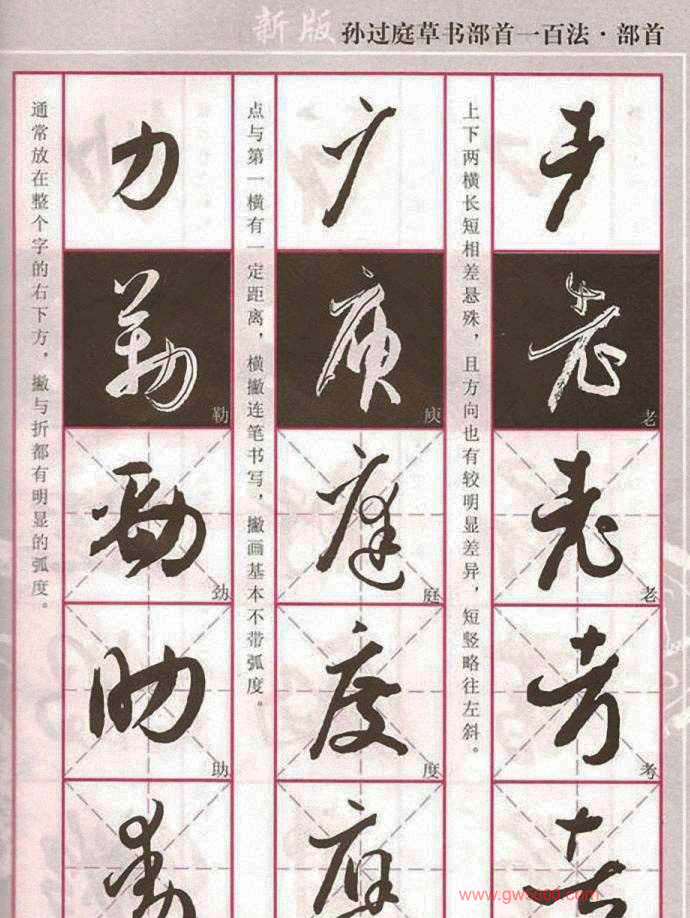 新版 孙过庭草书部首一百法·部首
上下两横长短相差悬殊，且方向也有较明显差异，短竖略往左斜。
老
老
考
点与第一横有一定距离，横撇连笔书写，撇画基本不带弧度。
庾
庭
度
力
通常放在整个字的右下方，撇与折都有明显的弧度。
勒
劲
助